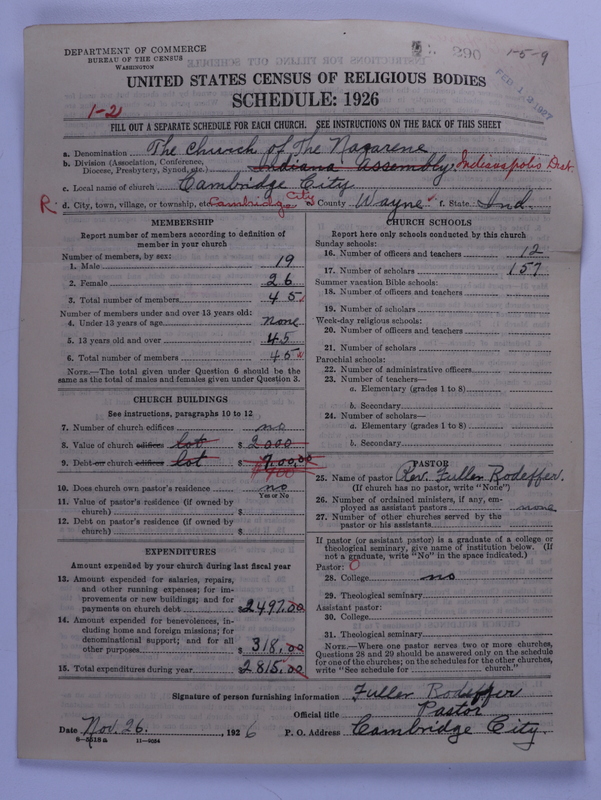 DEPARTMENT OF COMMERCE
BUREAU OF THE CENSUS
WASHINGTON
290
1-5-9
FEB 12 1927
UNITED STATES CENSUS OF RELIGIOUS BODIES
SCHEDULE: 1926
1-21
FILL OUT A SEPARATE SCHEDULE FOR EACH CHURCH. SEE INSTRUCTIONS ON THE BACK OF THIS SHEET
a. Denomination The Church of The Nazarene
b. Division (Association, Conference, Diocese, Presbytery, Synod, etc.) Indiana Assembly Indianapolis Dist.
c. Local name of church Cambridge City
R d. City, town, village, or township, etc. Cambridge City e. County Wayne f. State Ind.
MEMBERSHIP
Report number of members according to definition of
member in your church
Number of members, by sex:
1. Male 19
2. Female 26
3. Total number of members 45
Number of members under and over 13 years old:
4. Under 13 years of age none
5. 13 years old and over 45
6. Total number of members 45
NOTE.—The total given under Question 6 should be
same as the total of males and females given under Question 3.
CHURCH BUILDINGS
See instructions, paragraphs 10 to 12
7. Number of church edifices no
8. Value of church edifices lot $ 2000
9. Debt on church edifices lot $ 900.00
$ 900
10. Does church own pastor's residence no
Yes or No
11. Value of pastor's residence (if owned by
church) $
12. Debt on pastor's residence (if owned by
church) $
EXPENDITURES
Amount expended by your church during last fiscal year
13. Amount expended for salaries, repairs,
and other running expenses; for im-
provements or new buildings; and for
payments on church debt $ 2497.00
14. Amount expended for benevolences, in-
cluding home and foreign missions; for
denominational support; and for all
other purposes $ 318.00
15. Total expenditures during year 2815.00
CHURCH SCHOOLS
Report here only schools conducted by this church
Sunday schools:
16. Number of officers and teachers 12
17. Number of scholars 157
Summer vacation Bible schools:
18. Number of officers and teachers
19. Number of scholars
Week-day religious schools:
20. Number of officers and teachers
21. Number of scholars
Parochial schools:
22. Number of administrative officers
23. Number of teachers—
a. Elementary (grades 1 to 8)
b. Secondary
24. Number of scholars—
a. Elementary (grades 1 to 8)
b. Secondary
PASTOR
25. Name of pastor Rev. Fuller Rodeffer.
(If church has no pastor, write "None")
26. Number of ordained ministers, if any, em-
ployed as assistant pastors none
27. Number of other churches served by the
pastor or his assistants
If pastor (or assistant pastor) is a graduate of a college or
theological seminary, give name of institution below. (If
not a graduate, write "No" in the space indicated.)
Pastor: O
28. College no
29. Theological seminary
Assistant pastor:
30. College
31. Theological seminary
NOTE.—Where one pastor serves two or more churches,
Questions 28 and 29 should be answered only on the schedule
for one of the churches; on the schedules for the other churches,
write "See schedule for church."
Signature of person furnishing information Fuller Rodeffer
Official title Pastor
Date Nov. 26., 1926 P. O. Address Cambridge City
8—5518a 11—9084